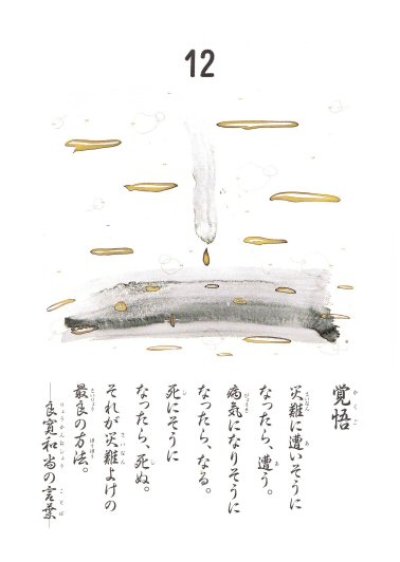 12
覚悟
災難に遭いそうに
なったら、遭う。
病気になりそうに
なったら、なる。
死にそうに
なったら、死ぬ。
それが災難よけの
最良の方法。
―良寛和尚の言葉